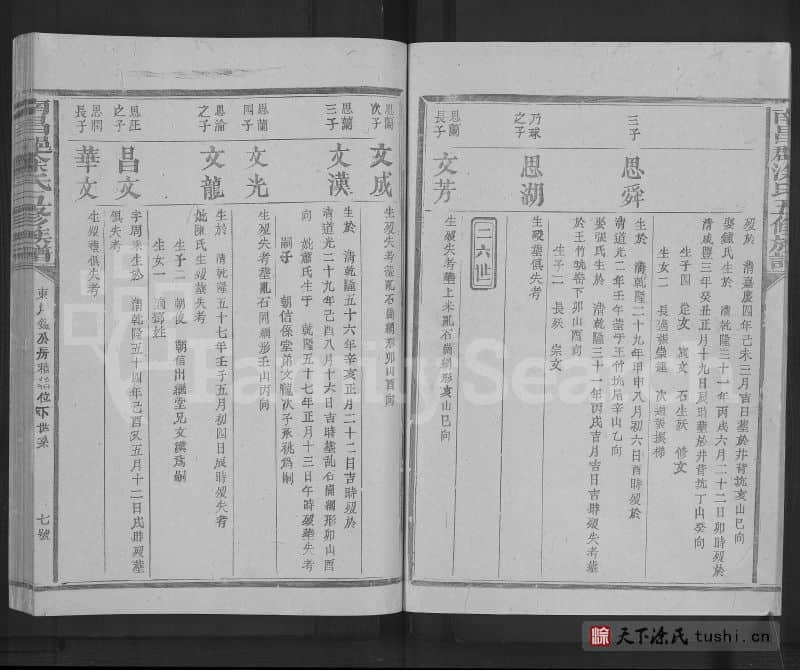 三子
思舜
清嘉慶四年己未三月吉日葬於井背坑亥山巳向
娶鍾氏生於 清乾隆三十一年丙戌六月二十二日卯時歿於
清咸豐三年癸丑正月十九日辰時葬於井背坑丁山癸向
生子四 定文 石生歿 修文
生女二
生於 清乾隆二十九年甲申八月初六日酉時歿於
清道光二年壬午葬于王竹坑尾辛山乙向
娶張氏生於 清乾隆三十一年丙戌吉月吉日吉時歿失考葬
於王竹坑壩下卯山酉向
生子二 長歿 宗文
乃球之子
思湖
生歿葬俱失考
二六世
思蘭長子
文芳
生歿失考葬上米亂石崗網形亥山巳向
思蘭次子
文成
生歿失考葬亂石崗網形卯山酉向
思蘭三子
文漢
生於 清乾隆五十六年辛亥正月二十二日吉時歿於
清道光二十九年己酉八月十六日吉時葬亂石崗網形卯山酉
向 妣蕭氏生于 乾隆五十七年正月十三日午時歿葬失考
嗣子 朝信係堂弟文龍次子承祧為嗣
思蘭四子
文光
生歿失考葬亂石崗網形壬山丙向
思淪之子
文龍
生於 清乾隆五十七年壬子五月初四日辰時歿失考
妣陳氏生歿葬失考
生子二 朝俊 朝信出繼堂兄文漢為嗣
生女一 適鄧姓
思註之子
昌文
字周來生於 清乾隆五十四年己酉又五月十二日戌時歿葬
俱失考
思問長子
華文
生歿葬俱失考
南昌邑涂氏五修族譜
七號
南昌郡涂氏五修族譜
FamilySearch
天下涂氏 tushi.cn